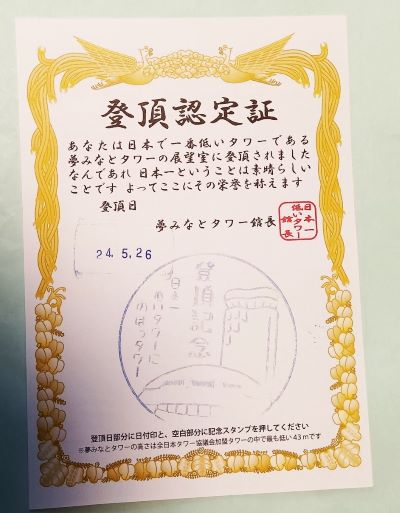 登頂認定証
あなたは日本で一番低いタワーである
夢みなとタワーの展望室に登頂されました
なんであれ 日本一ということは素晴らしい
ことです よってここにその栄誉を称えます
登頂日
夢みなとタワー館長
日本一
低いタワー
館長
24.5.26
登頂記念
日本一
低いタワーに
のぼっタワー
登頂日部分に日付印と、空白部分に記念スタンプを押してください
※夢みなとタワーの高さは全日本タワー協議会加盟タワーの中で最も低い43mです